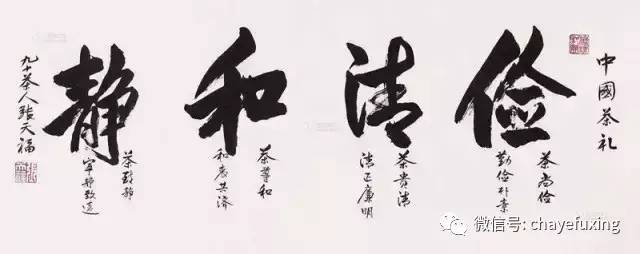 中國茶礼
俭
茶尚俭
勤俭朴素
清
茶贵清
清正廉明
和
茶导和
和衷共济
静
茶致静
宁静致远
九十茶人張天福
微信号: chayefuxing